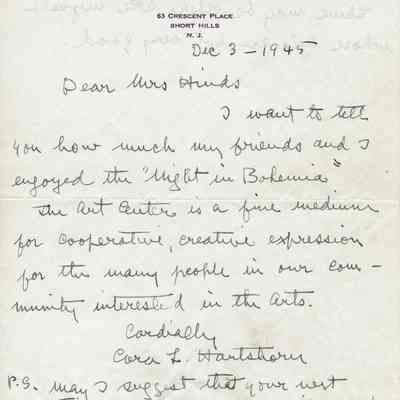 63 CRESCENT PLACE
SHORT HILLS
N. J.
Dec 3 – 1945
Dear Mrs Hinds
I want to tell
you how much my friends and I
enjoyed the "Night in Bohemia"
The Art Center is a fine medium
for cooperative, creative expression
for the many people in our com –
munity interested in the arts.
Cordially
Cora L. Hartshorn
P.S. May I suggest that your next